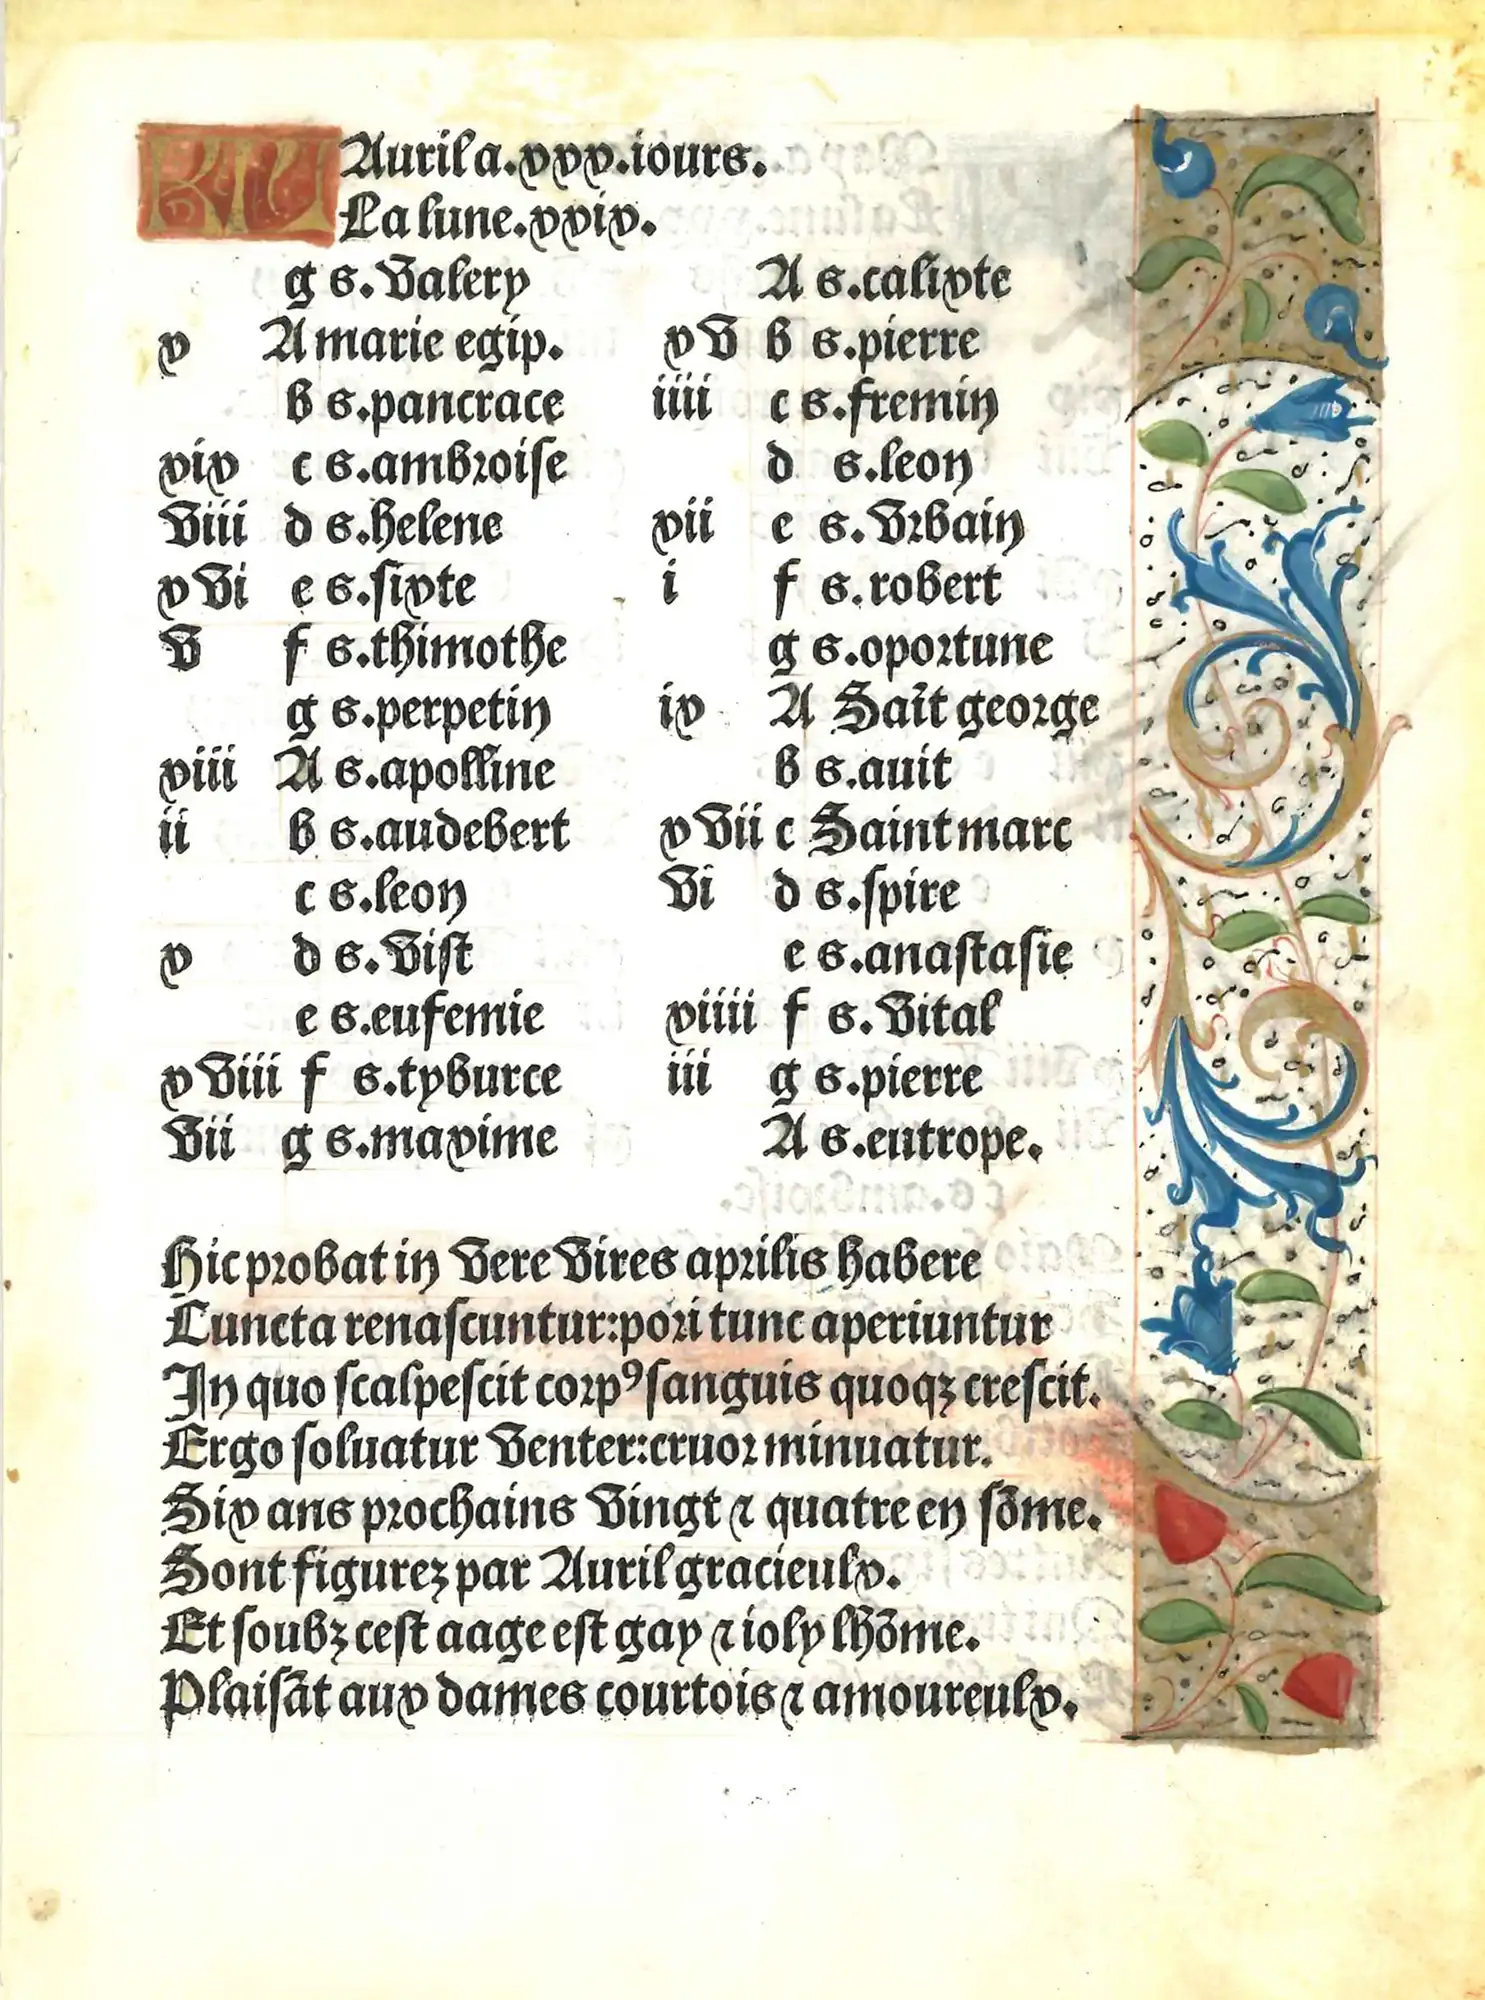 KL Auril a.xxx.iours.
La lune.xxix.
g s.Valery
x A marie egip.
b s.pancrace
xix c s.ambroise
Viii d s.helene
xVi e s.sixte
V f s.thimothe
g s.perpetin
xiii A s.apolline
ii b s.audebert
c s.leon
x d s.Vist
e s.eufemie
xViii f s.tyburce
Vii g s.maxime
A s.calixte
xV b s.pierre
iiii c s.fremin
d s.leon
xii e s.Vrbain
i f s.robert
g s.oportune
ix A Saĩt george
b s.auit
xVii c Saint marc
Vi d s.spire
e s.anastasie
xiiii f s.Vital
iii g s.pierre
A s.eutrope.
Hic probat in Vere Vires aprilis habere
Cuncta renascuntur:pori tunc aperiuntur
In quo scalpescit corpꝰ sanguis quoqꝫ crescit.
Ergo soluatur Venter:cruor minuatur.
Six ans prochains Vingt ⁊ quatre en sõme.
Sont figurez par Auril gracieulx.
Et soubz cest aage est gay ⁊ ioly lhõme.
Plaisãt aux dames courtois ⁊ amoureulx.